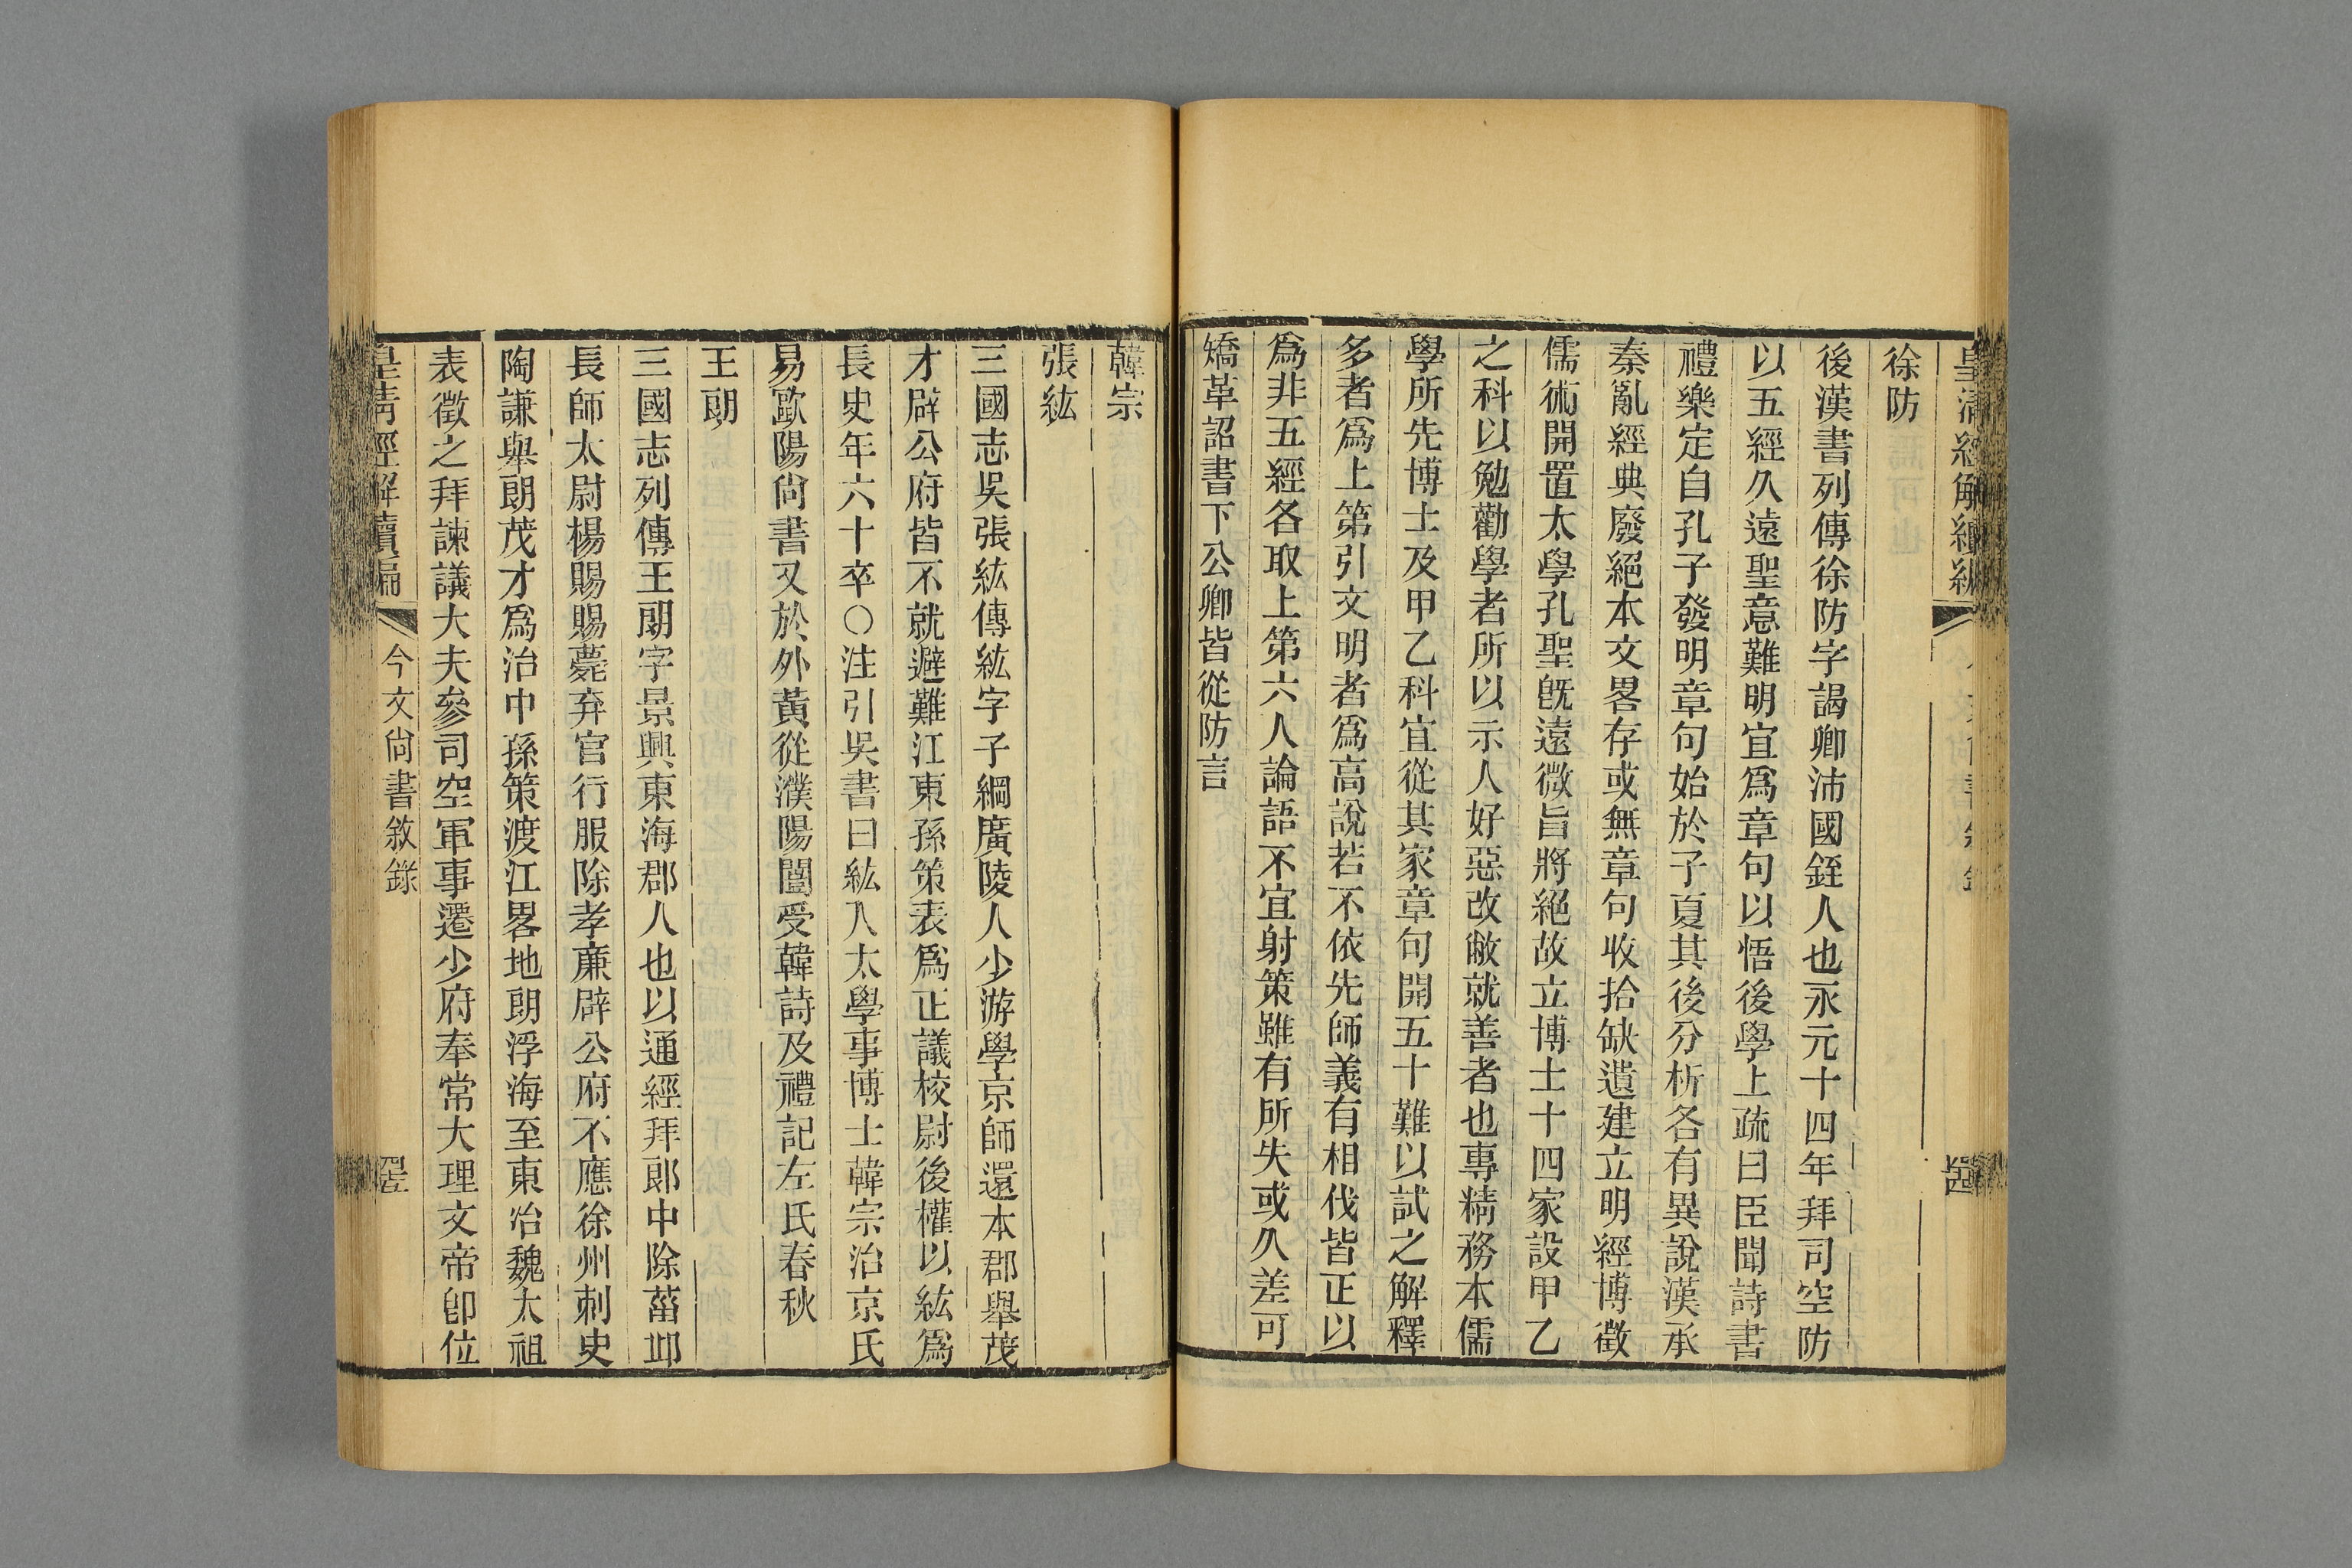 皇清經解續編
徐防
後漢書列傳徐防字謁卿沛國銍人也永元十四年拜司空防
以五經久遠聖意難明宜爲章句以悟後學上疏曰臣聞詩書
禮樂定自孔子發明章句始於子夏其後分析各有異說漢承
秦亂經典廢絕本文畧存或無章句收拾缺遺建立明經博徵
儒術開置太學孔聖旣遠微旨將絕故立博士十四家設甲乙
之科以勉勸學者所以示人好惡改敝就善者也專精務本儒
學所先博士及甲乙科宜從其家章句開五十難以試之解釋
多者爲上第引文明者爲高說若不依先師義有相伐皆正以
爲非五經各取上第六人論語不宜射策雖有所失或久差可
矯革詔書下公卿皆從防言
韓宗
張紘
三國志吳張紘傳紘字子綱廣陵人少游學京師還本郡舉茂
才辟公府皆不就避難江東孫策表爲正議校尉後權以紘爲
長史年六十卒○注引吳書曰紘入太學事博士韓宗治京氏
易歐陽尙書又於外黃從濮陽闓受韓詩及禮記左氏春秋
王朗
三國志列傳王朗字景興東海郡人也以通經拜郞中除菑邱
長師太尉楊賜賜薨弃官行服除孝廉辟公府不應徐州刺史
陶謙舉朗茂才爲治中孫策渡江畧地朗浮海至東冶魏太祖
表徵之拜諫議大夫參司空軍事遷少府奉常大理文帝卽位
皇清經解續編 今文尙書敘錄